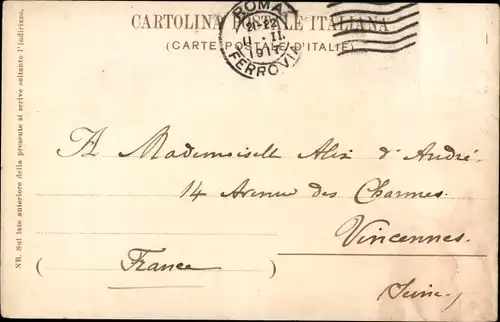 CARTOLINA POSTALE ITALIANA
(CARTE POSTALE D'ITALIE)
ROMA
21-22
11 - II.
FERROVIA
NB. Sul lato anteriore della presente si scrive soltanto l'indirizzo.
A Mademoiselle Alix d'André
14 Avenue des Charmes
Vincennes.
(France) (Seine)